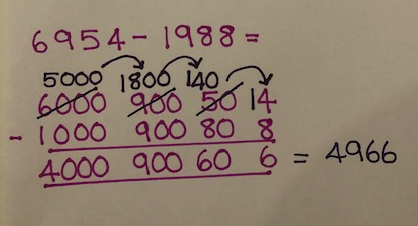 6954 - 1988 =
5000 1800 140
6000 900 50 14
- 1000 900 80 8
4000 900 60 6 = 4966